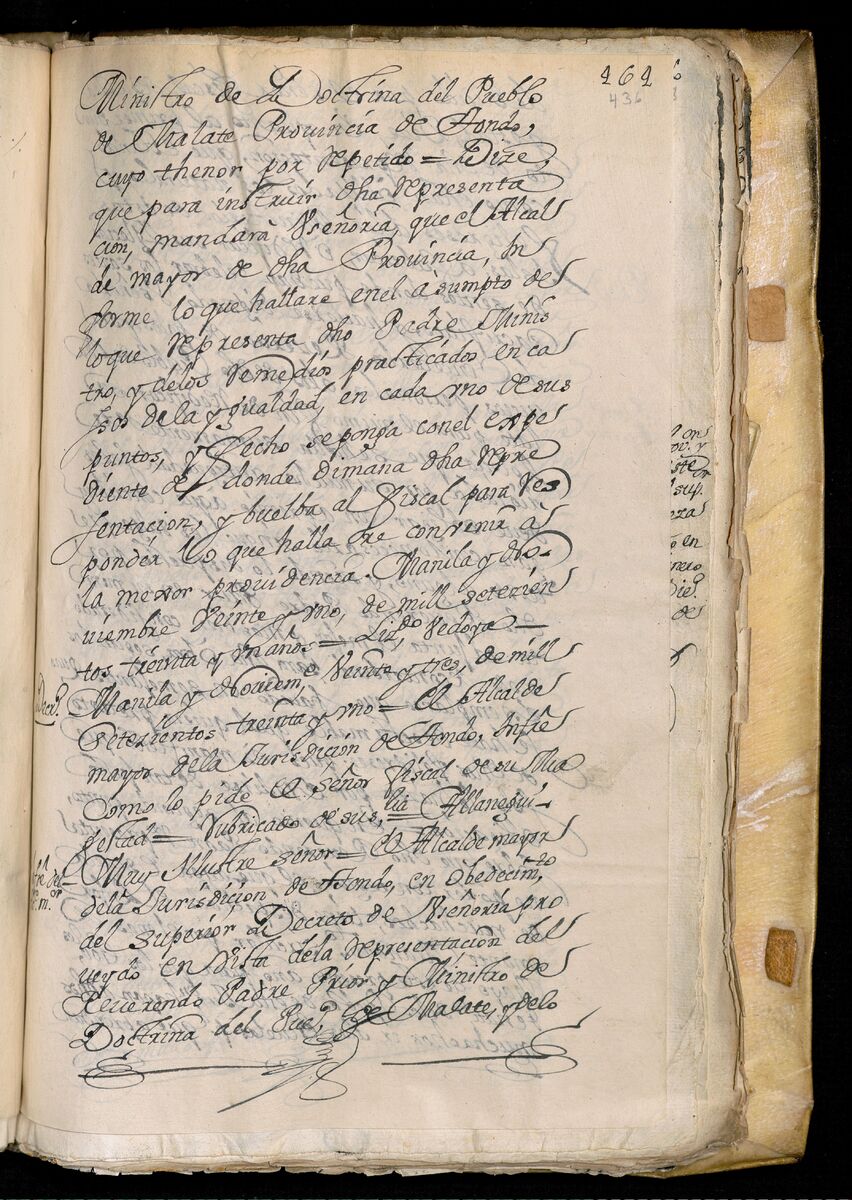 464
436
Ministro de la Doctrina del Pueblo
de Malate Provincia de Tondo,
cuyo thenor por repetido = Dize,
que para instruir dha representa
ción, mandarà Vseñoria, que el Alcal
de mayor de dha Provincia, In
forme lo que hallare enel àsumpto de
loque representa dho Padre Minis
tro, y delos remedios practicados en ca
ssos de la ygualdad, en cada vno de sus
puntos, y fecho se ponga conel expe
diente de donde dimana dha repre
sentacion, y buelba al Fiscal para res
ponder lo que halla re convenir à
la menor providencia. Manila y No
viembre Veinte y vno, de mill setezien
tos treinta y vn años = Liz.do Vedoya =
Decr.to
Manila y Noviem.e Veinte y tres, de mill
Setezientos treinta y vno = El Alcalde
mayor dela Jurisdición de Tondo, Infre
Como lo pide el señor Fiscal de su Ma
gestad = Rubricado de sus.ria = Allanegui =
Muy Illustre señor = el Alcalde mayor
dela Jurisdicion de Tondo, en obedecim.to
del superior Decreto de Vseñoria pro
ueydo en Vista dela representación del
Reuerendo Padre Prior y Ministro de
Doctrina del Pue.o de Malate, y delo